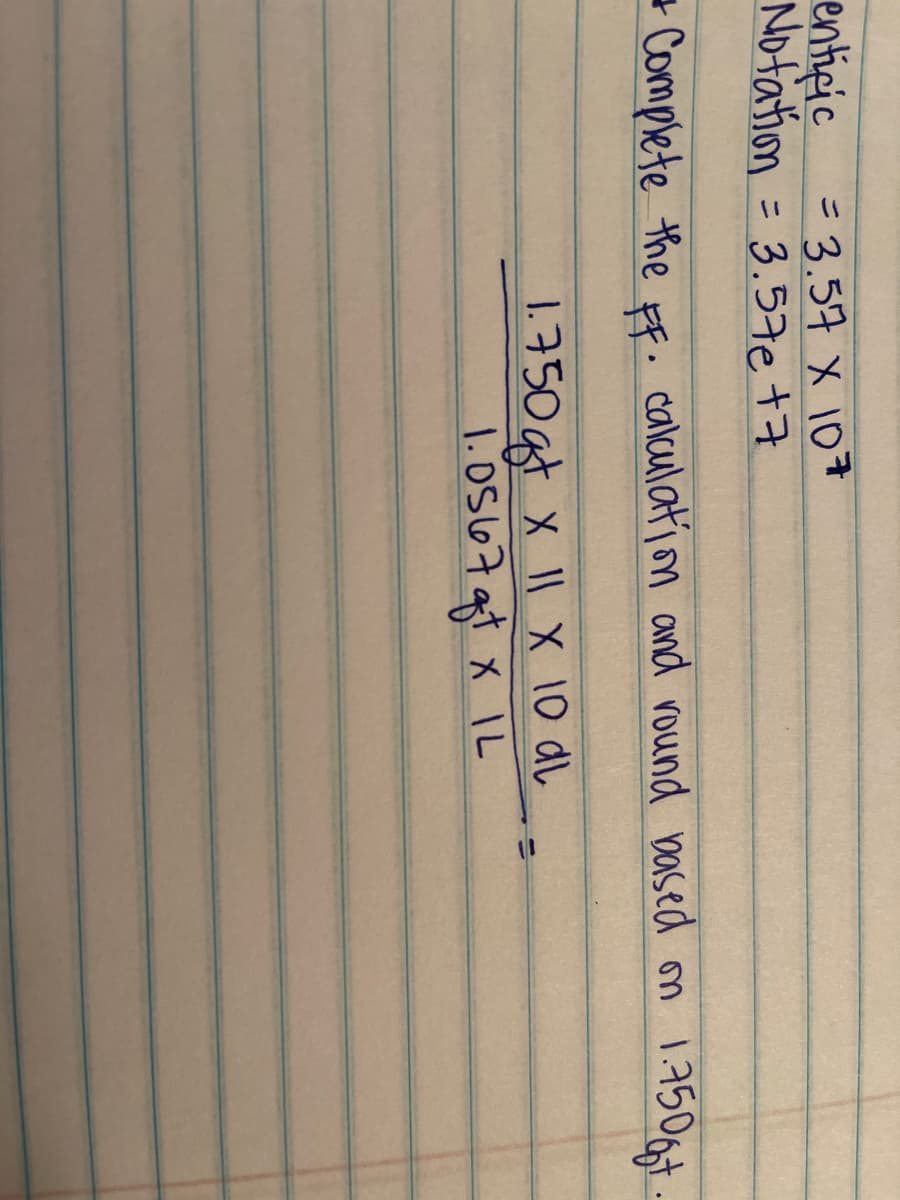 entific = 3.57 X 10⁷
Notation = 3.57e+7
Complete the ff. calculation and round based on 1.750qt.
1.750qt x 11 x 10 dL
1.0567qt x 1L =